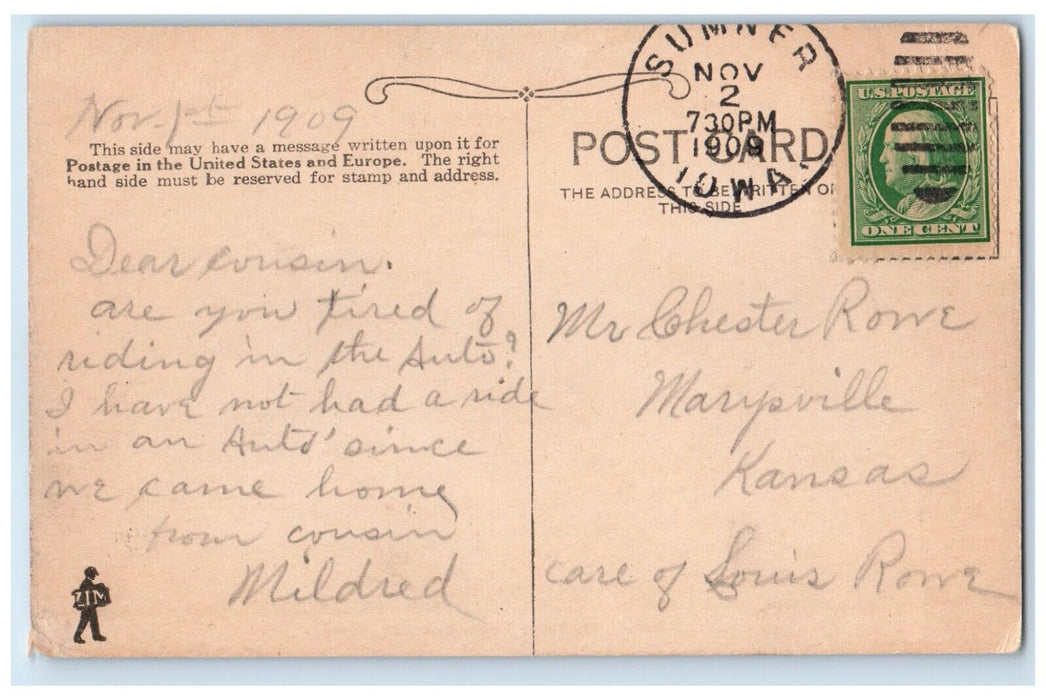 Nov. 1st 1909
This side may have a message written upon it for
Postage in the United States and Europe. The right
hand side must be reserved for stamp and address.
Dear cousin.
are you tired of
riding in the Auto?
I have not had a ride
in an Auto' since
we came home
from cousin
Mildred
ZIM
SUMNER
NOV
2
730PM
1909
IOWA.
POST CARD
THE ADDRESS TO BE WRITTEN ON
THIS SIDE
U.S. POSTAGE
ONE CENT
Mr Chester Rowe
Marysville
Kansas
care of Louis Rowe